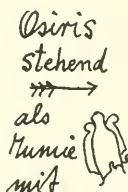 Osiris
stehend
als
Mumie
mit